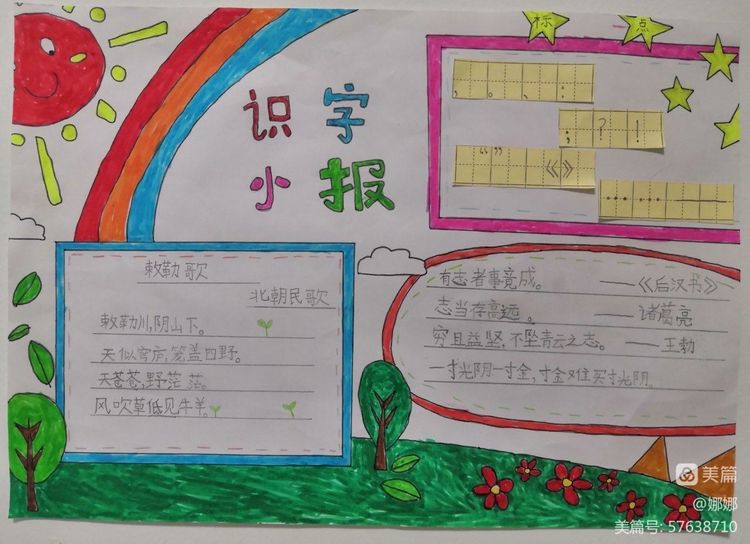 识字
小报
标 点
, 。 、 :
; ? !
“ ” 《 》
…… ——
敕勒歌
北朝民歌
敕勒川,阴山下。
天似穹庐,笼盖四野。
天苍苍,野茫茫。
风吹草低见牛羊。
有志者事竟成。 ——《后汉书》
志当存高远。 ——诸葛亮
穷且益坚,不坠青云之志。 ——王勃
一寸光阴一寸金,寸金难买寸光阴。
美篇
@娜娜
美篇号: 57638710